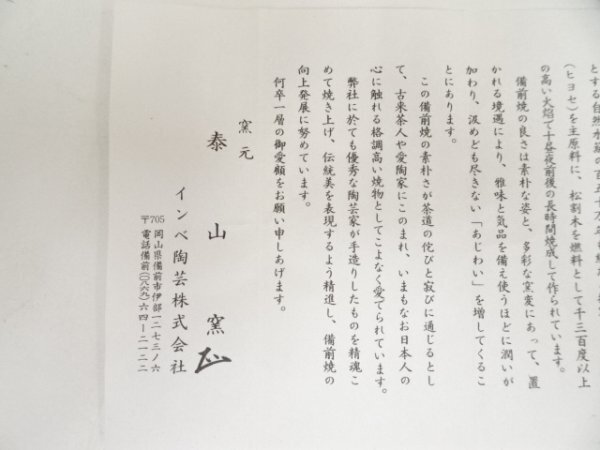 とする自然水簸の百五十万年
(ヒヨセ)を主原料に、松割木を燃料として千三百度以上
の高い火焰で十昼夜前後の長時間焼成して作られています。
備前焼の良さは素朴な姿と、多彩な窯変にあって、置
かれる境遇により、雅味と気品を備え使うほどに潤いが
加わり、汲めども尽きない「あじわい」を増してくるこ
とにあります。
この備前焼の素朴さが茶道の侘びと寂びに通じるとし
て、古来茶人や愛陶家にこのまれ、いまもなお日本人の
心に触れる格調高い焼物としてこよなく愛でられています。
弊社に於ても優秀な陶芸家が手造りしたものを精魂こ
めて焼き上げ、伝統美を表現するよう精進し、備前焼の
向上発展に努めています。
何卒一層の御愛顧をお願い申しあげます。
窯元
泰山窯
インベ陶芸株式会社
〒705 岡山県備前市伊部一二七三ノ六
電話備前(〇八六九)六四ー二一二二